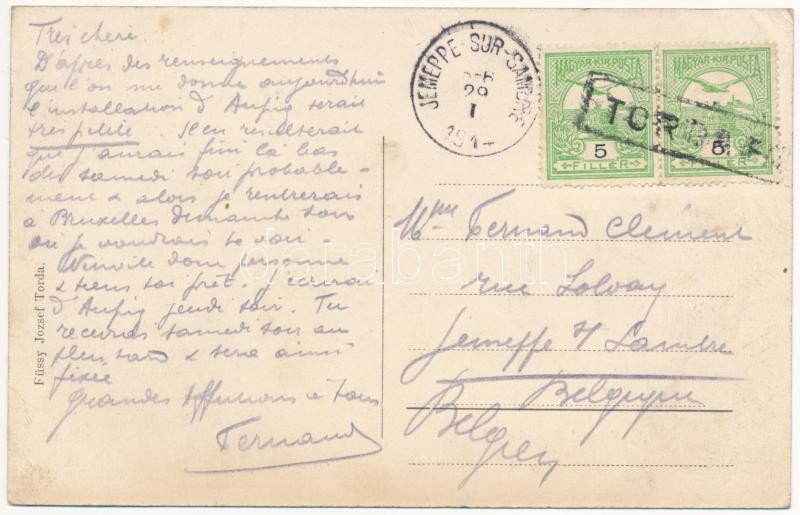 Très chère.
D'après des renseignements
que l'on me donne aujourd'hui
l'installation d' serait
très petite. Il en resulterait
que j'aurais fini là bas
dès samedi soir probable-
ment & alors je rentrerais
à Bruxelles dimanche soir
ou je voudrais te voir
N'invite donc personne
& tiens toi prêt. J'écrirai
d' jeudi soir. Tu
recevras samedi soir au
plus tard & sera ainsi
fixée
Grandes affections à tous
Fernand
Füssy Jozsef Torda.
JEMEPPE-SUR-SAMBRE
29
I
1914
MAGYAR·KIR·POSTA
5
FILLÉR
MAGYAR·KIR·POSTA
5
FILLÉR
TORDA
Mme Fernand Clément
rue Solvay
Jemeppe s/ Sambre
Belgique
Belgien
darabanth